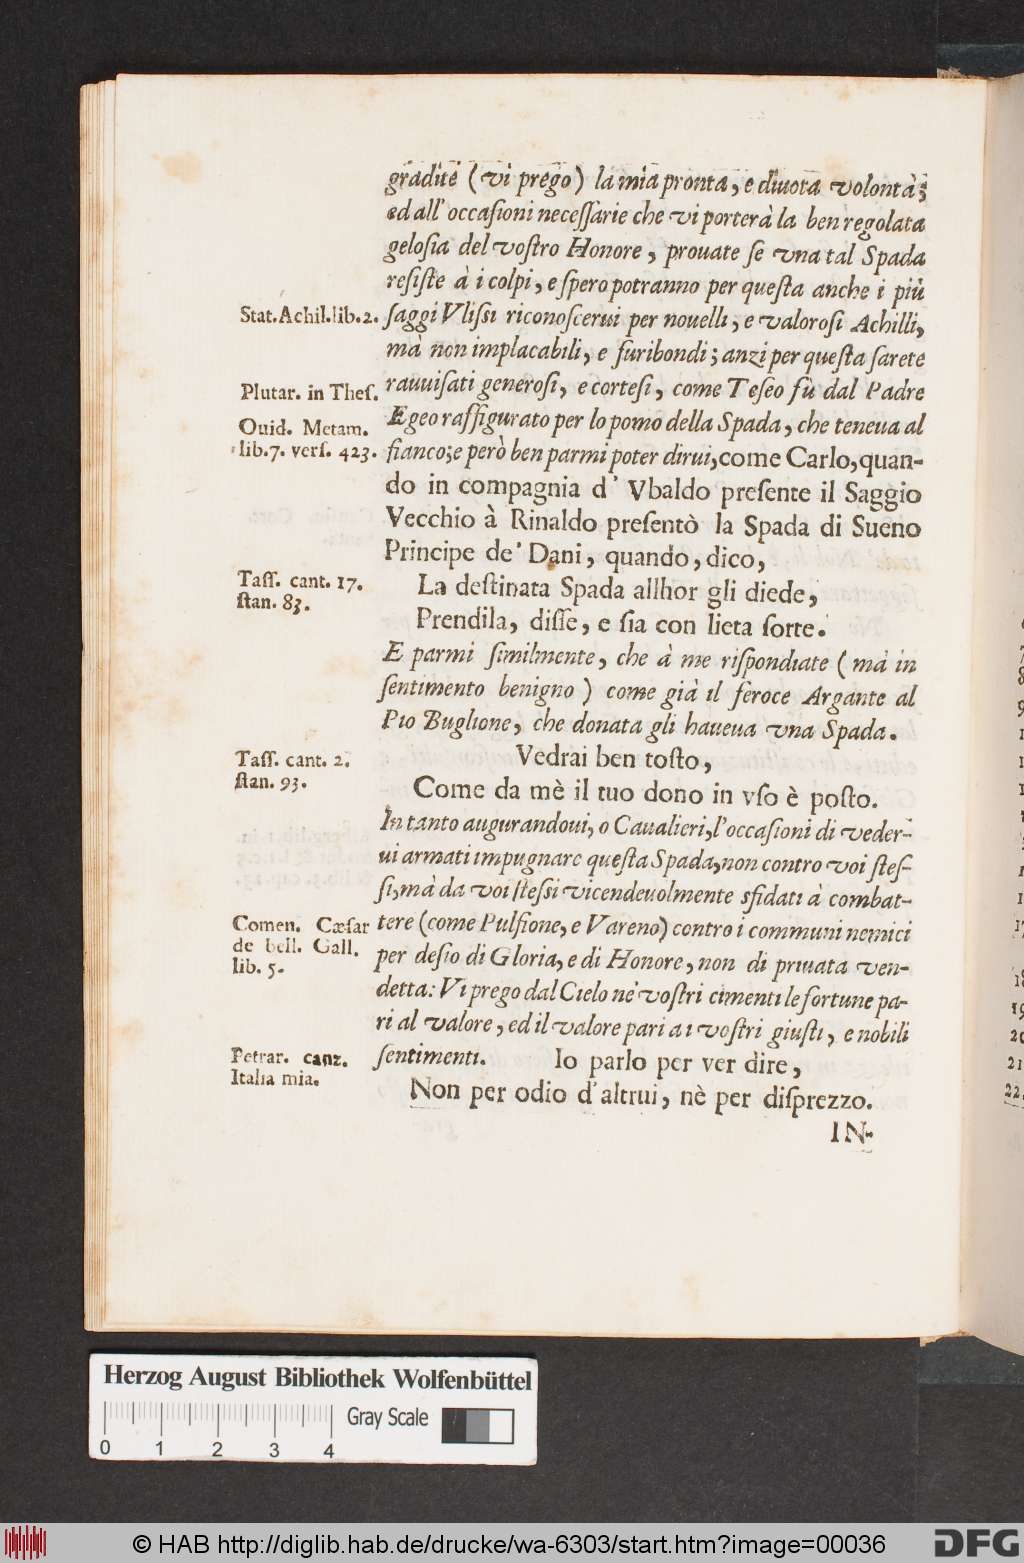 gradite (vi prego) la mia pronta, e diuota volontà;
ed all' occaſioni neceſſarie che vi porterà la ben regolata
geloſia del voſtro Honore, prouate ſe vna tal Spada
reſiſte à i colpi, e ſpero potranno per queſta anche i più
Stat. Achil. lib. 2.
ſaggi Vliſſi riconoſcerui per nouelli, e valoroſi Achilli,
mà non implacabili, e furibondi; anzi per queſta ſarete
Plutar. in Theſ.
rauuiſati generoſi, e corteſi, come Teſeo fù dal Padre
Ouid. Metam.
lib. 7. verſ. 423.
Egeo raffigurato per lo pomo della Spada, che teneua al
fianco; e però ben parmi poter dirui, come Carlo, quan-
do in compagnia d' Vbaldo preſente il Saggio
Vecchio à Rinaldo preſentò la Spada di Sueno
Principe de' Dani, quando, dico,
Taſſ. cant. 17.
ſtan. 83.
La deſtinata Spada allhor gli diede,
Prendila, diſſe, e ſia con lieta ſorte.
E parmi ſimilmente, che à me riſpondiate (mà in
ſentimento benigno) come già il feroce Argante al
Pio Buglione, che donata gli haueua vna Spada.
Taſſ. cant. 2.
ſtan. 93.
Vedrai ben toſto,
Come da mè il tuo dono in vſo è poſto.
In tanto augurandoui, o Caualieri, l'occaſioni di veder-
ui armati impugnare queſta Spada, non contro voi ſteſ-
ſi, mà da voi ſteſſi vicendeuolmente sfidati à combat-
Comen. Cæſar
de bell. Gall.
lib. 5.
tere (come Pulfione, e Vareno) contro i communi nemici
per deſio di Gloria, e di Honore, non di priuata ven-
detta: Vi prego dal Cielo ne' voſtri cimenti le fortune pa-
ri al valore, ed il valore pari a i voſtri giuſti, e nobili
Petrar. canz.
Italia mia.
ſentimenti. Io parlo per ver dire,
Non per odio d'altrui, nè per diſprezzo.
IN-
Herzog August Bibliothek Wolfenbüttel
Gray Scale
0 1 2 3 4
7
8
9
1
20
21
22
© HAB http://diglib.hab.de/drucke/wa-6303/start.htm?image=00036
DFG